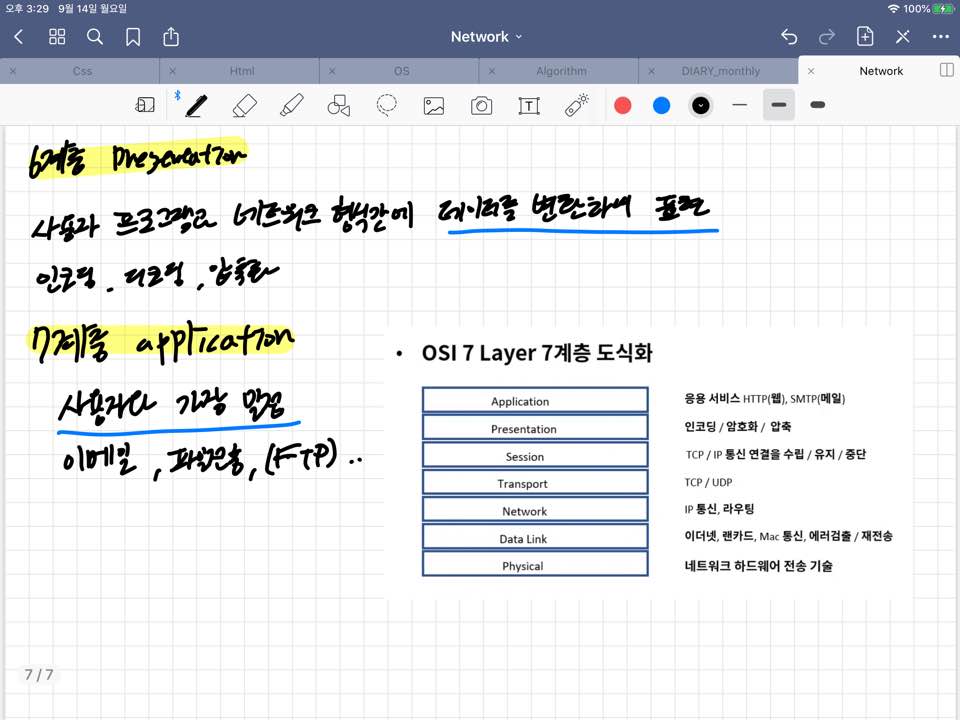 오후 3:29 9월 14일 월요일 100%
Network
Css Html OS Algorithm DIARY_monthly Network
6계층 presentation
사용자 프로그램과 네트워크 형식간에 데이터를 변환하여 표현
인코딩, 디코딩, 암호화
7계층 application
사용자와 가장 밀접
이메일, 파일전송, (FTP) ..
• OSI 7 Layer 7계층 도식화
Application 응용 서비스 HTTP(웹), SMTP(메일)
Presentation 인코딩 / 암호화 / 압축
Session TCP / IP 통신 연결을 수립 / 유지 / 중단
Transport TCP / UDP
Network IP 통신, 라우팅
Data Link 이더넷, 랜카드, Mac 통신, 에러검출 / 재전송
Physical 네트워크 하드웨어 전송 기술
7 / 7